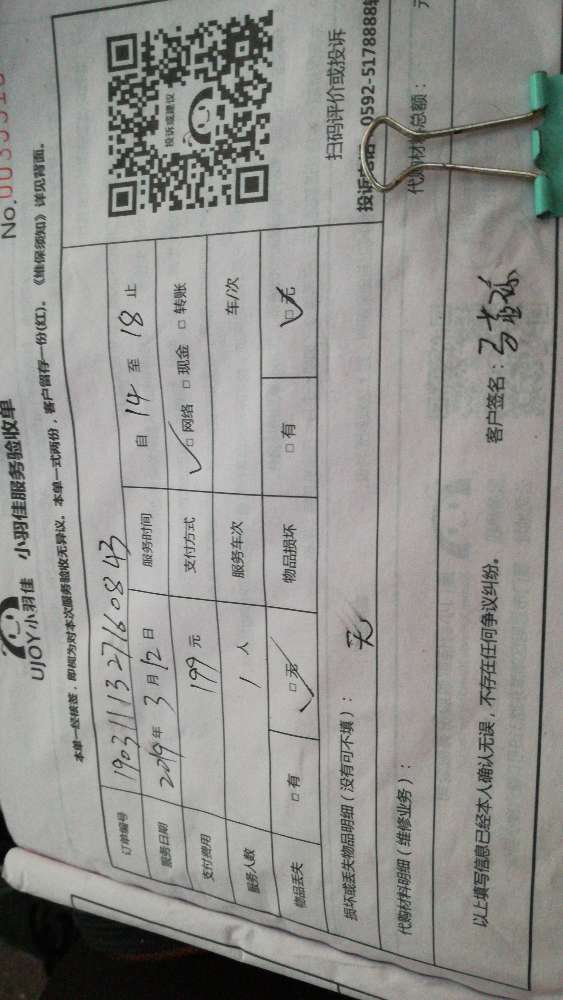 No.
UJOY小羽佳 小羽佳服务验收单
本单一经核签，即视为对本次服务验收无异议。本单一式两份，客户留存一份(红)。《维保须知》详见背面。
订单编号 1903111327160843
服务日期 2019年 3月12日 服务时间 自 14 至 18 止
支付费用 199 元 支付方式 ☑网络 □现金 □转账
服务人数 1 人 服务车次 车/次
物品丢失 □有 ☑无 物品损坏 □有 ☑无
投诉或建议
扫码评价或投诉
0592-5178888
损坏或丢失物品明细（没有可不填）： 无
代购材料明细（维修业务）： 总额： 元
以上填写信息已经本人确认无误，不存在任何争议纠纷。 客户签名：